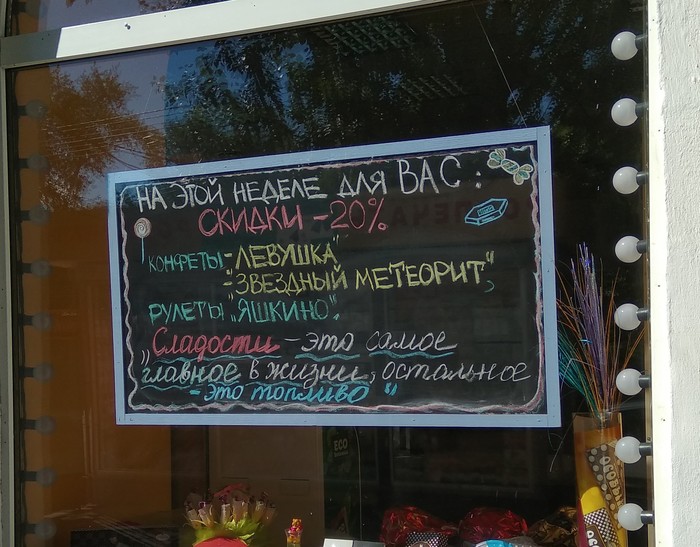 НА ЭТОЙ НЕДЕЛЕ ДЛЯ ВАС:
СКИДКИ -20%
КОНФЕТЫ -"ЛЕВУШКА"
-"ЗВЕЗДНЫЙ МЕТЕОРИТ",
РУЛЕТЫ "ЯШКИНО".
"Сладости - это самое
главное в жизни, остальное
- это топливо"
ECO